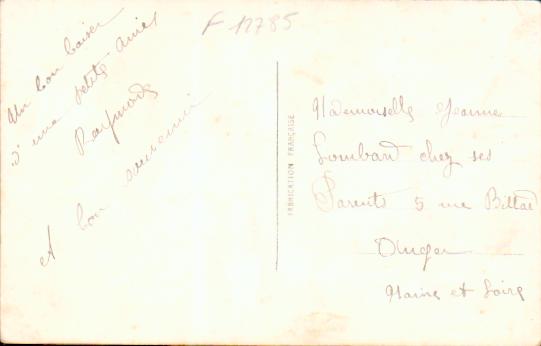 F 11785
Un bon baiser
d'une petite amie
Raymonde
et bon souvenir
FABRICATION FRANÇAISE
Mademoiselle Jeanne
Lombard chez ses
Parents 5 rue
Angers
Maine et Loire